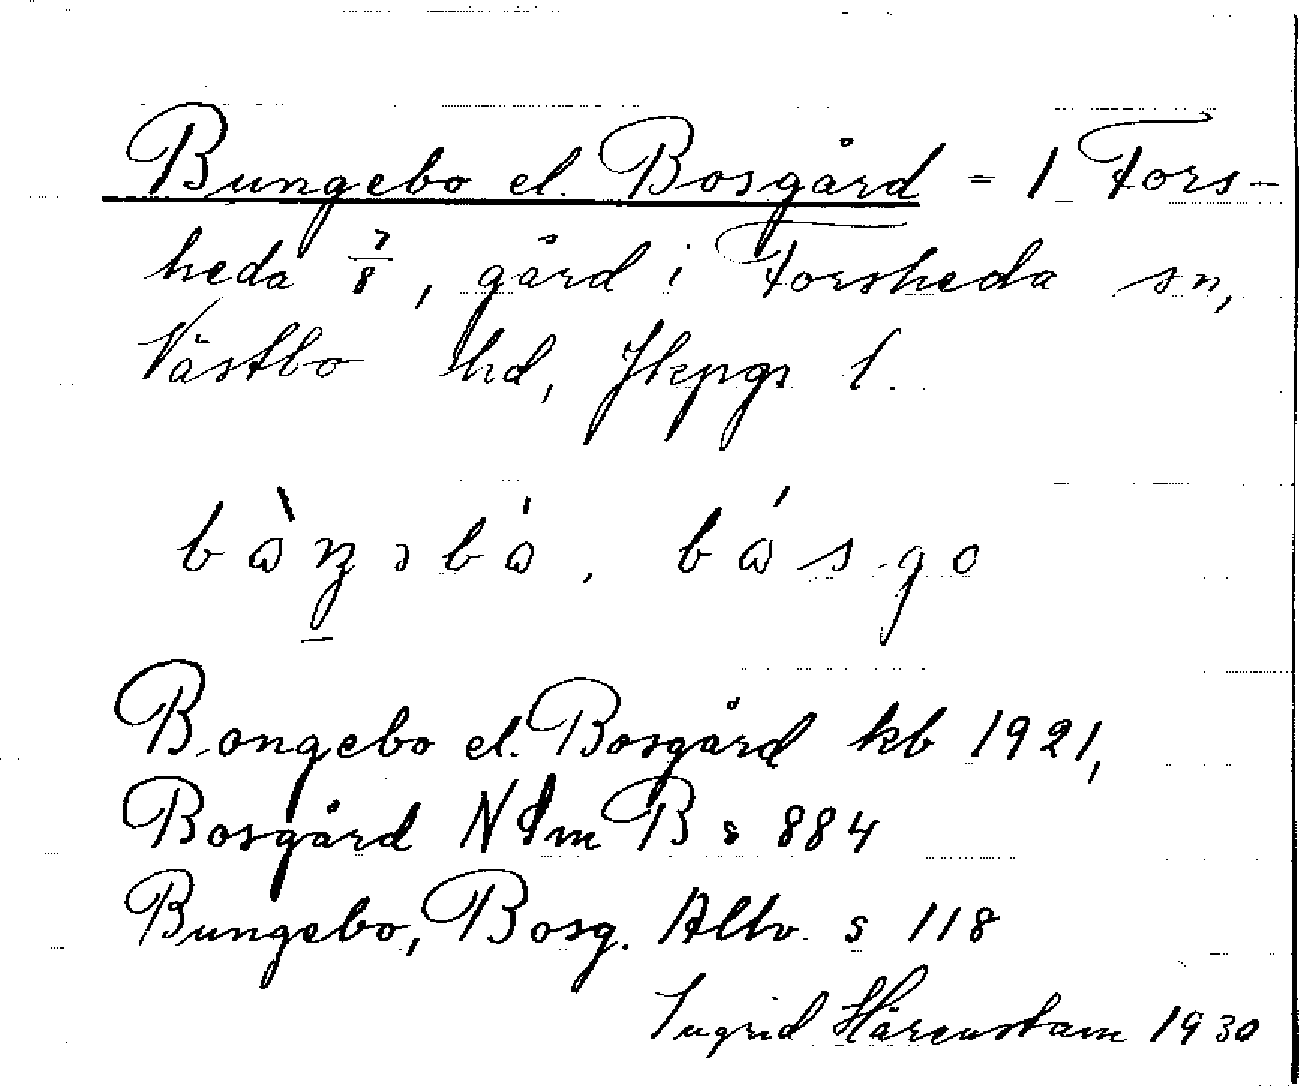 Bungebo el. Bosgård = 1 Fors-
heda 7/8, gård i Forsheda sn,
Västbo hd, Jkpgs l.
bὼŋəbɷ́, bɷ́sgo
Bongebo el. Bosgård kb 1921,
Bosgård NIm B s 884
Bungebo, Bosg. Allv. s 118
Ingrid Härenstam 1930